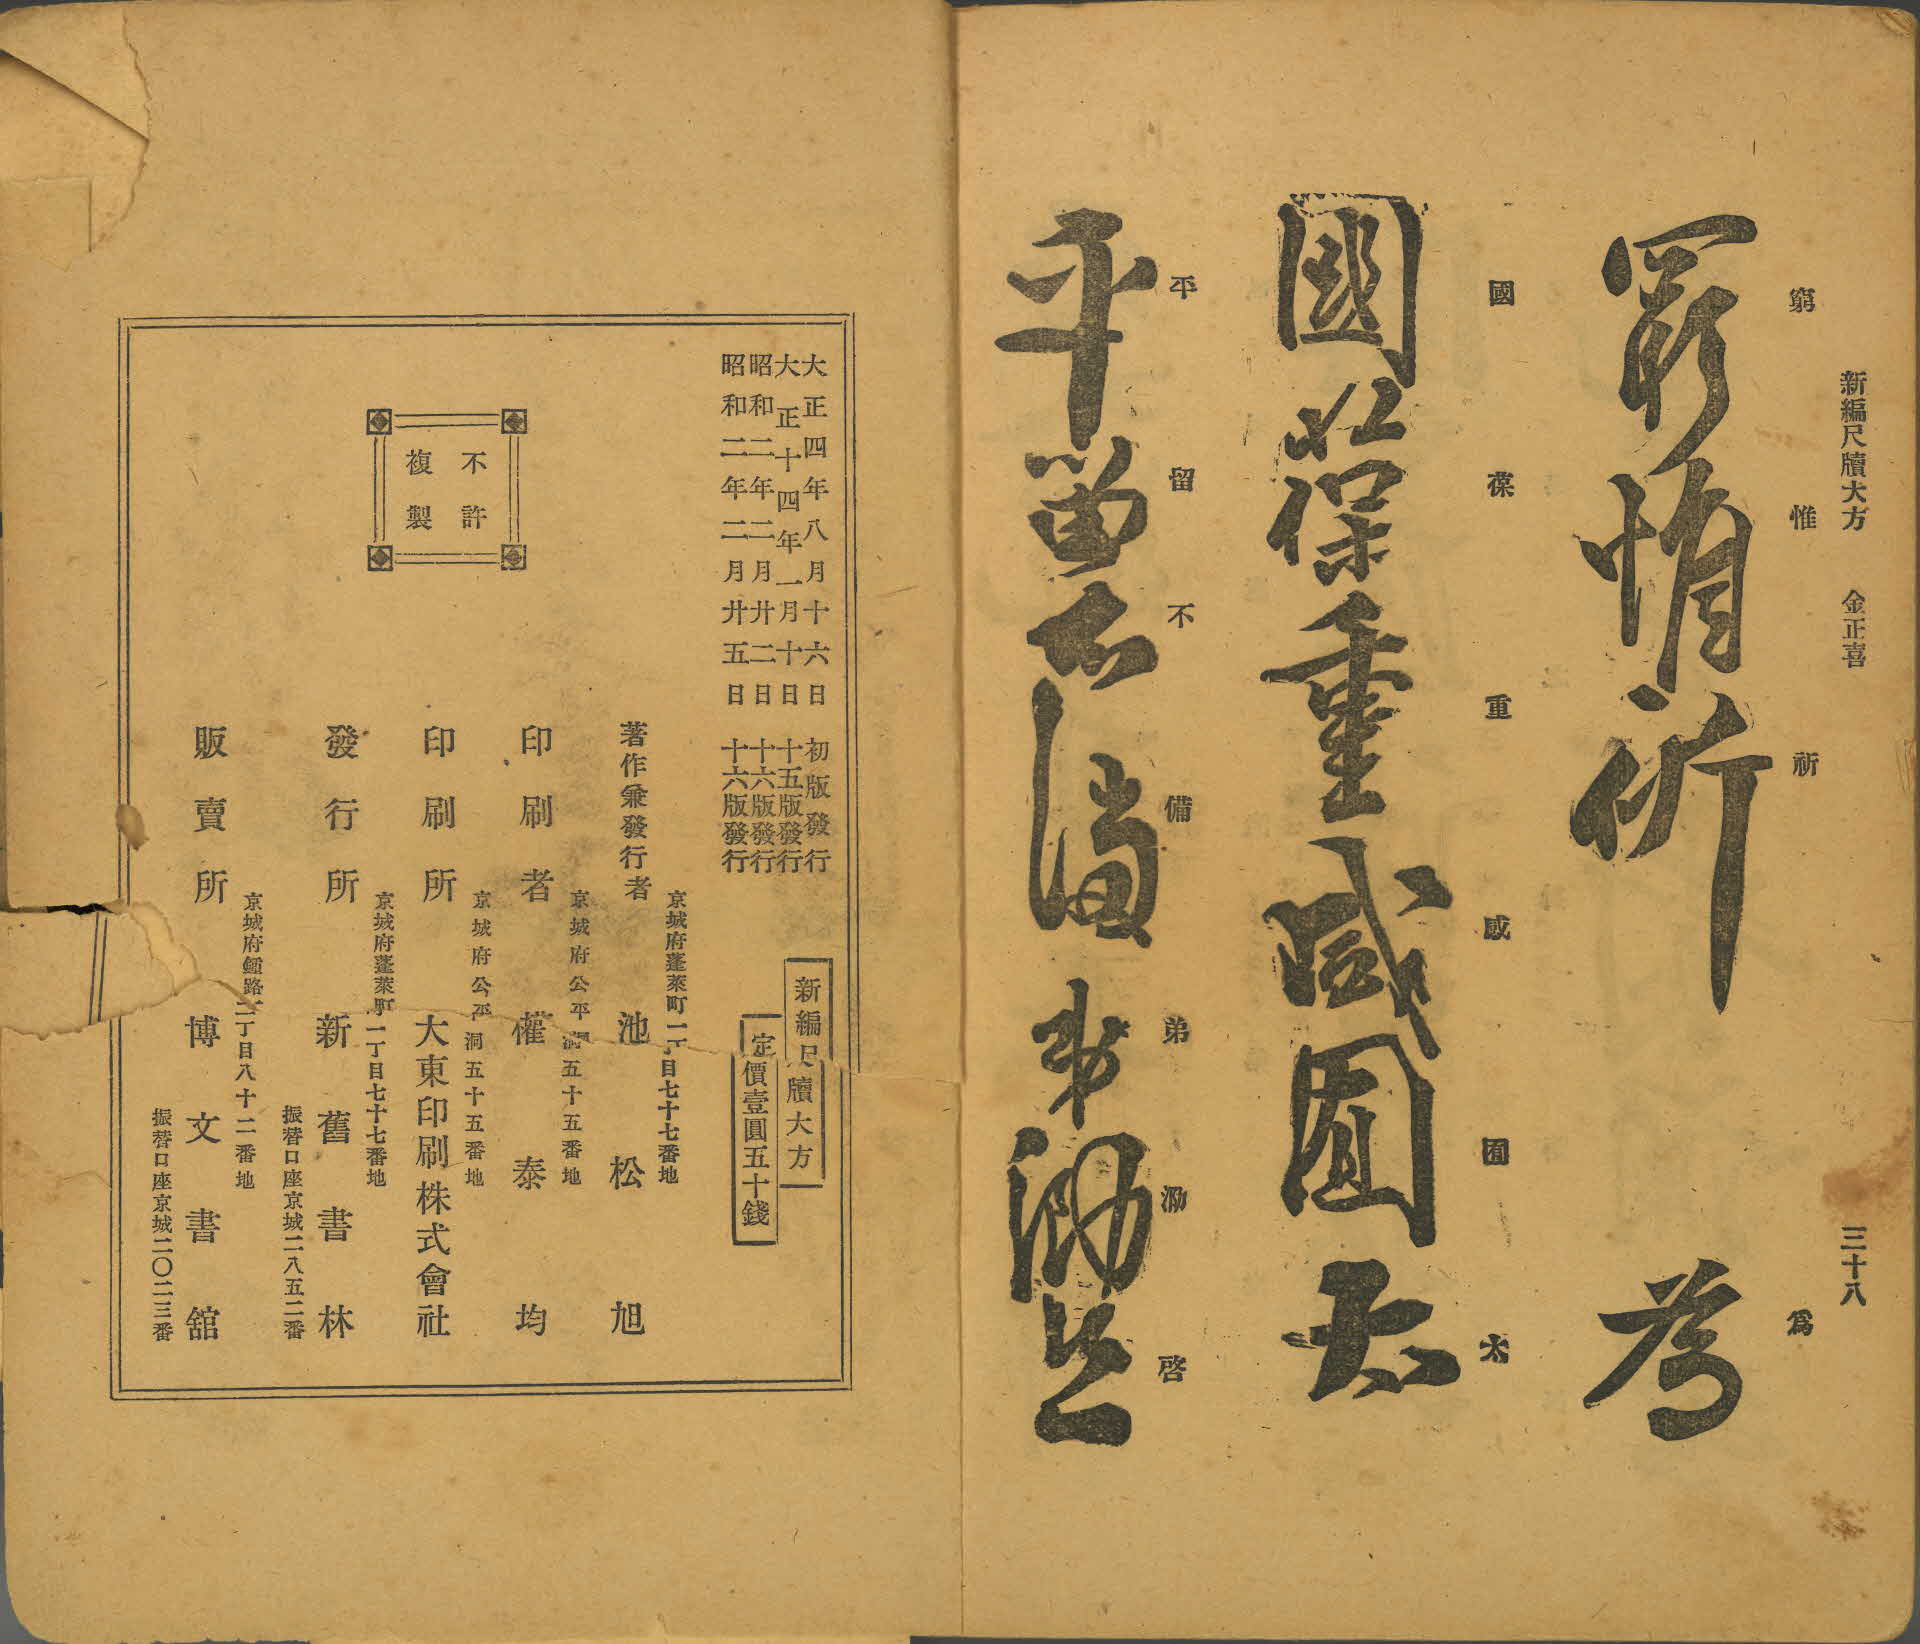 新編尺牘大方 金正喜 三十八
窮惟祈 爲
窮惟祈 爲
國葆重 咸囿太
國葆重咸囿太
平留不備 弟泐啓
平留不備 弟泐啓
大正四年八月十六日 初版發行
大正十四年一月十日 十五版發行
昭和二年二月廿二日 十六版發行
昭和二年二月廿五日 十六版發行
新編尺牘大方
定價壹圓五十錢
不許
複製
京城府蓬萊町一丁目七十七番地
著作兼發行者 池松旭
京城府公平洞五十五番地
印刷者 權泰均
京城府公平洞五十五番地
印刷所 大東印刷株式會社
京城府蓬萊町一丁目七十七番地
發行所 新舊書林
振替口座京城二八五二番
京城府鍾路二丁目八十二番地
販賣所 博文書舘
振替口座京城二〇二三番